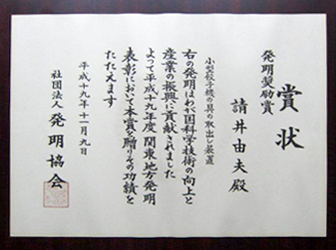 賞状
発明奨励賞
請井由夫殿
小型餃子機の具の取出し装置
右の発明はわが国科学技術の向上と
産業の振興に貢献されました
よって平成十九年度関東地方発明
表彰において本賞を贈りその功績を
たたえます
平成十九年十一月九日
社団法人発明協会